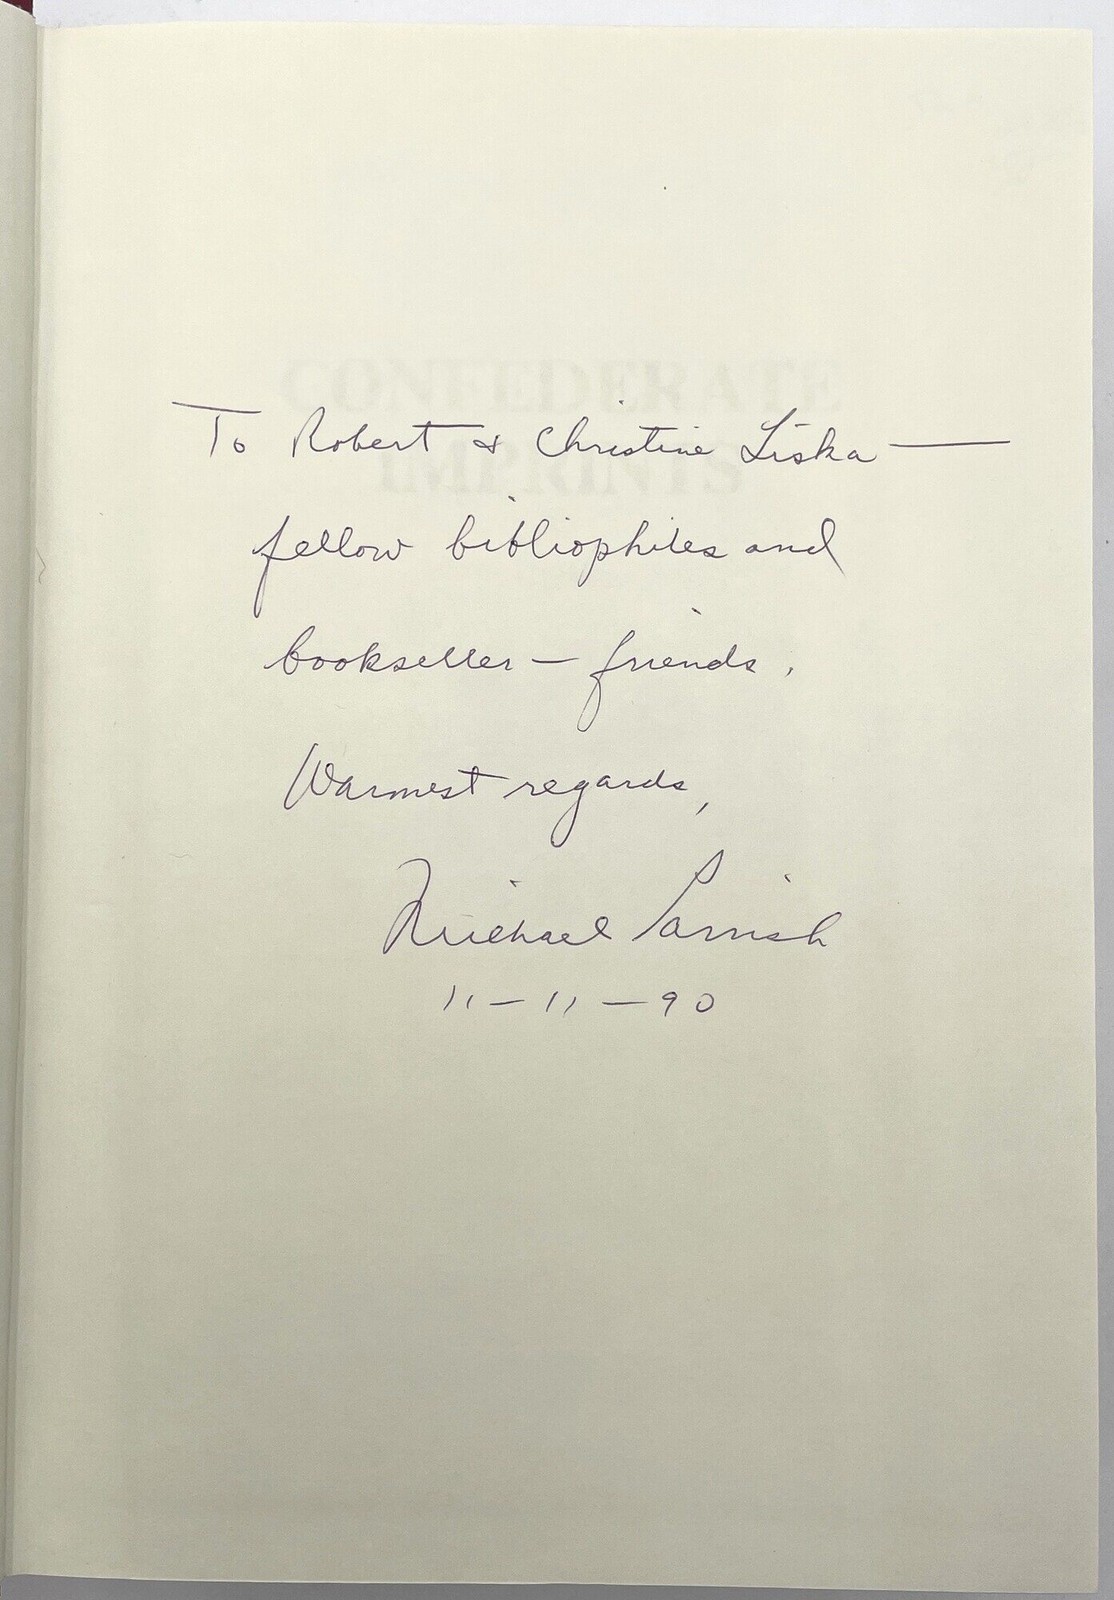 CONFEDERATE
IMPRINTS
To Robert & Christine Liska —
fellow bibliophiles and
bookseller – friends.
Warmest regards,
Michael Parrish
11 – 11 – 90